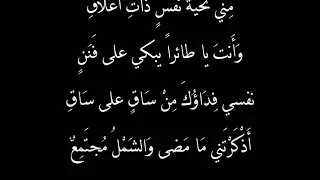 مِني تحيةَ نفسٍ ذَاتِ أَعلاقِ
وَأَنتَ يا طائراً يبكي على فَنَنٍ
نفسي فِدَاؤُكَ مِنْ سَاقٍ على سَاقِ
أَذْكَرْتَني مَا مَضى وَالشَمْلُ مُجتَمِعٌ